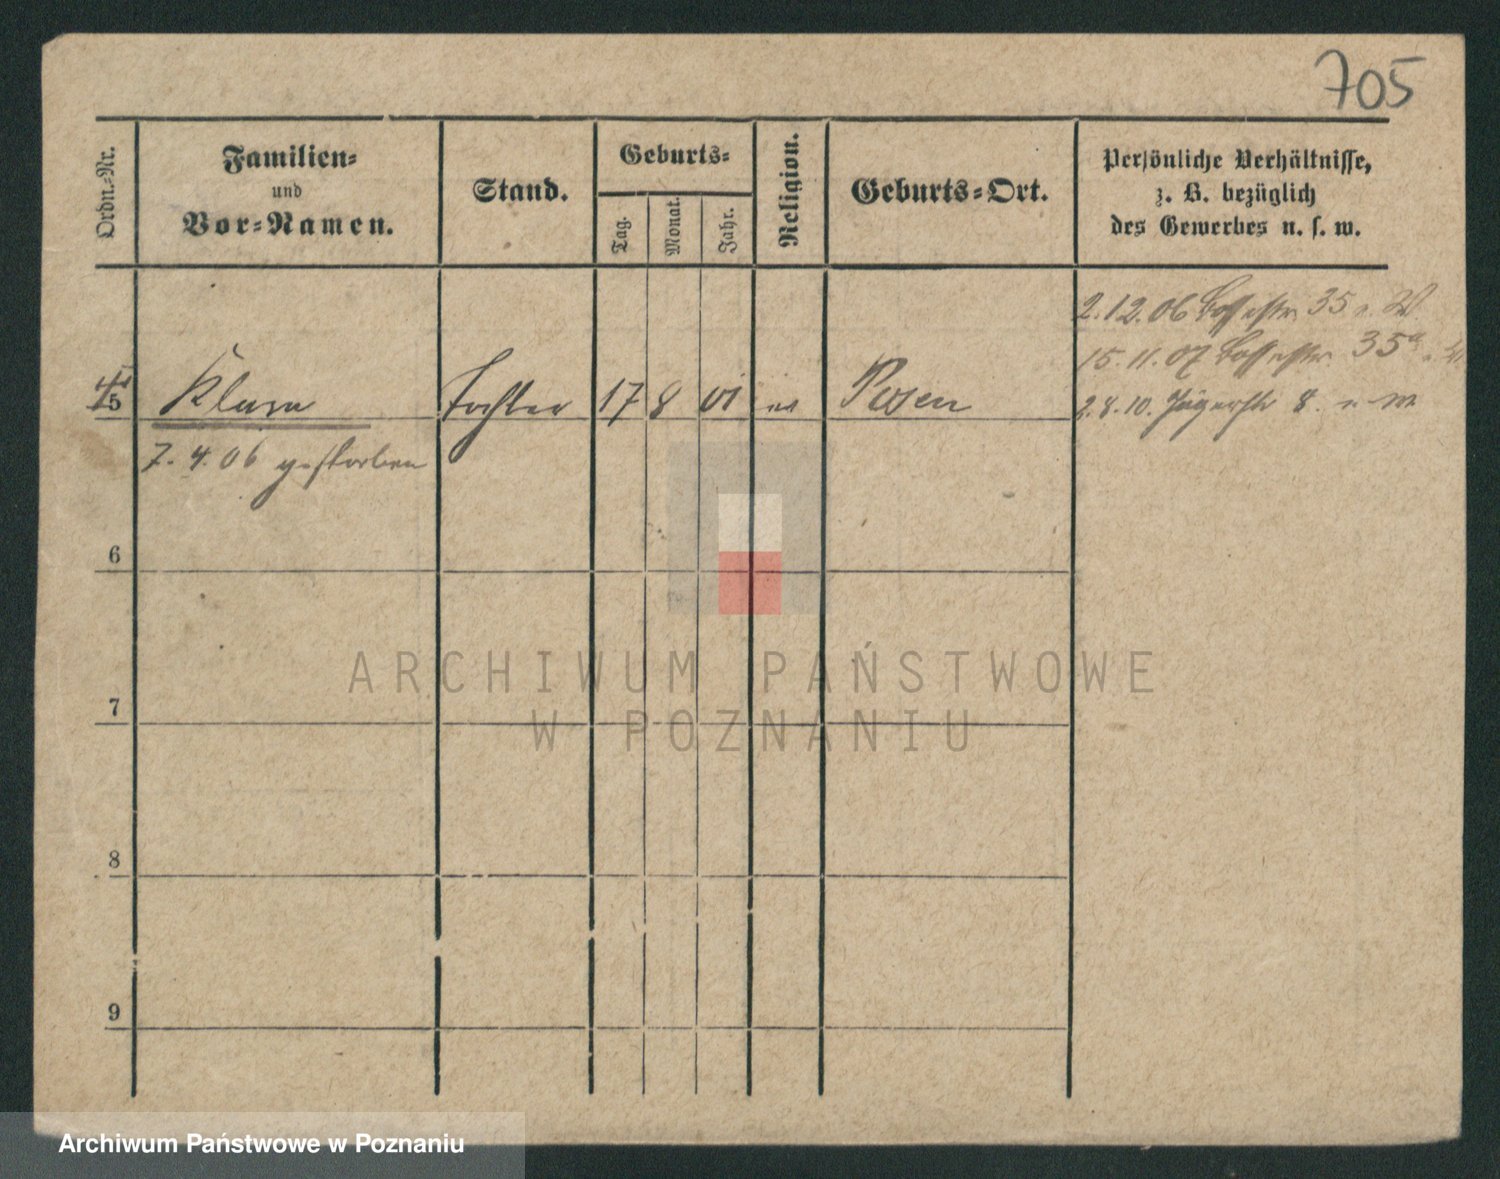 705
Ordn.-Nr.
Familien-
und
Vor-Namen.
Stand.
Geburts-
Tag.
Monat.
Jahr.
Religion.
Geburts-Ort.
Persönliche Verhältnisse,
z. B. bezüglich
des Gewerbes u. s. w.
2.12.06 35
15.11.07 35a
5 Klara Tochter 17 8 01 Posen
2.8.10. Jägerstr 8.
7. 4. 06 gestorben
6
7
8
9
ARCHIWUM PAŃSTWOWE
W POZNANIU
Archiwum Państwowe w Poznaniu